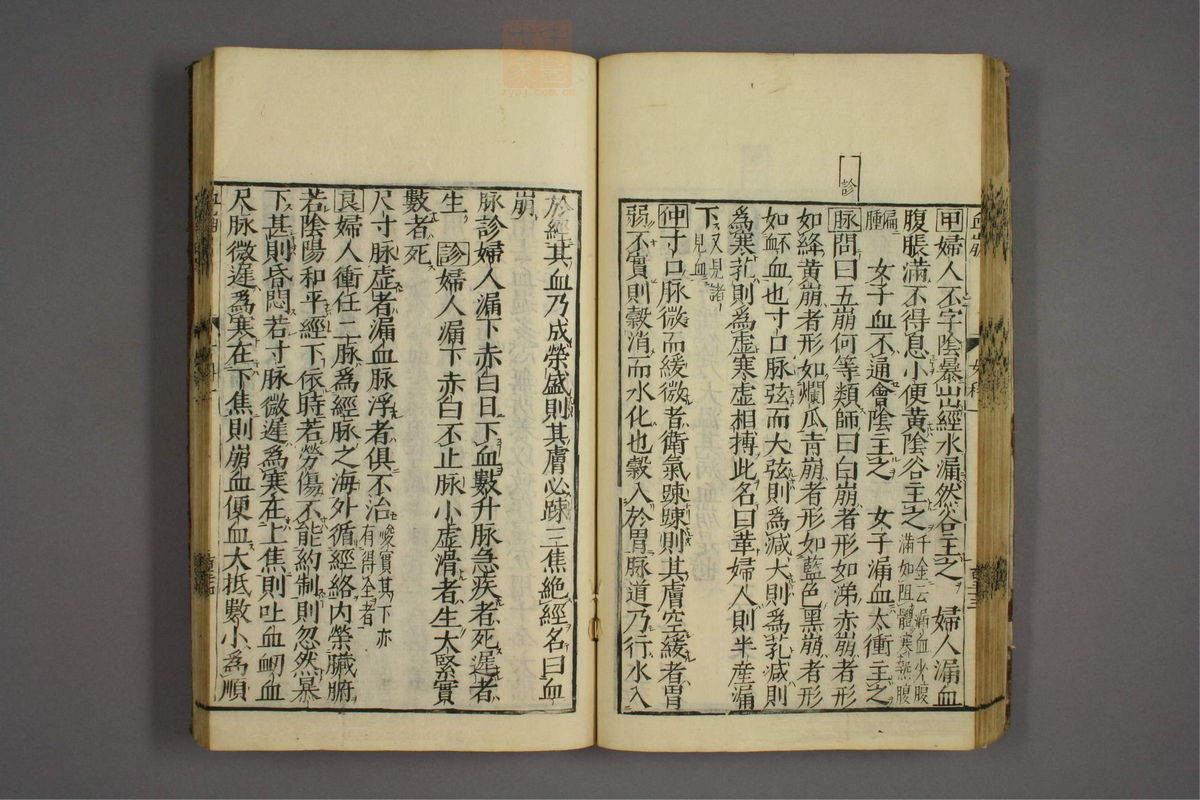 診
甲婦人不字陰暴出經水漏然谷主之　婦人漏血
腹脹滿不得息小便黃陰谷主之千金云漏血少腹滿如阻體寒熱腹
腫　女子血不通會陰主之　女子漏血太衝主之
脉問曰五崩何等類師曰白崩者形如涕赤崩者形
如絳黃崩者形如爛瓜青崩者形如藍色黑崩者形
如衃血也寸口脉弦而大弦則為減大則為芤減則
為寒芤則為虛寒虛相搏此名曰革婦人則半產漏
下又見諸見血
仲寸口脉微而緩微者衛氣踈踈則其膚空緩者胃
弱不實則穀消而水化也穀入於胃脉道乃行水入
於經其血乃成榮盛則其膚必踈三焦絶經名曰血
崩
脉診婦人漏下赤白日下血數升脉急疾者死遲者
生　診婦人漏下赤白不止脉小虛滑者生大緊實
數者死
尺寸脉虛者漏血脉浮者俱不治峻實其下亦有得全者
良婦人衝任二脉為經脉之海外循經絡內榮臟腑
若陰陽和平經下依時若勞傷不能約制則忽然暴
下甚則昏悶若寸脉微遲為寒在上焦則吐血衂血
尺脉微遲為寒在下焦則崩血便血大抵數小為順